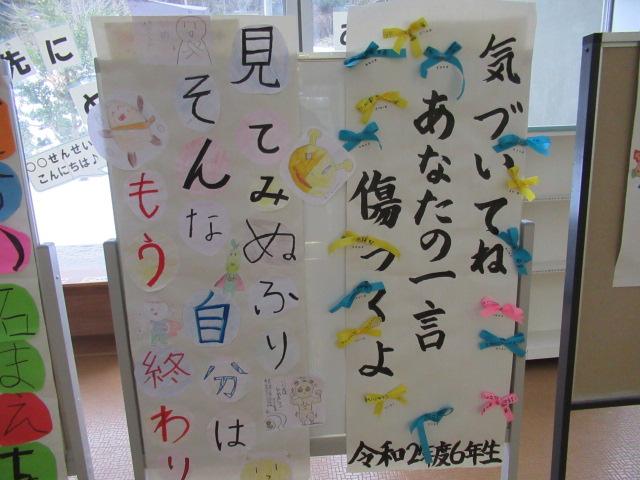 気づいてね
あなたの一言
傷つくよ
令和2年度6年生
見てみぬふり
そんな自分は
もう終わり
先に
○○せんせい
こんにちは♪